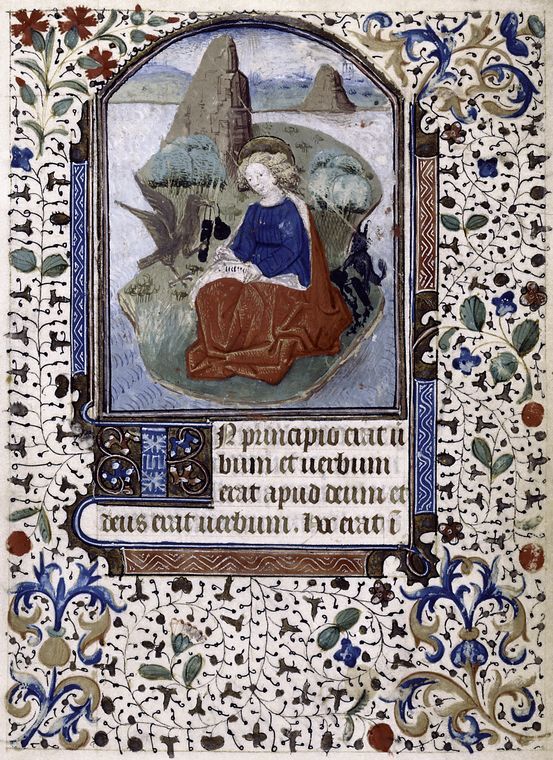 IN principio erat u
bum et uerbum
erat apud deum et
deus erat uerbum. hoc erat i